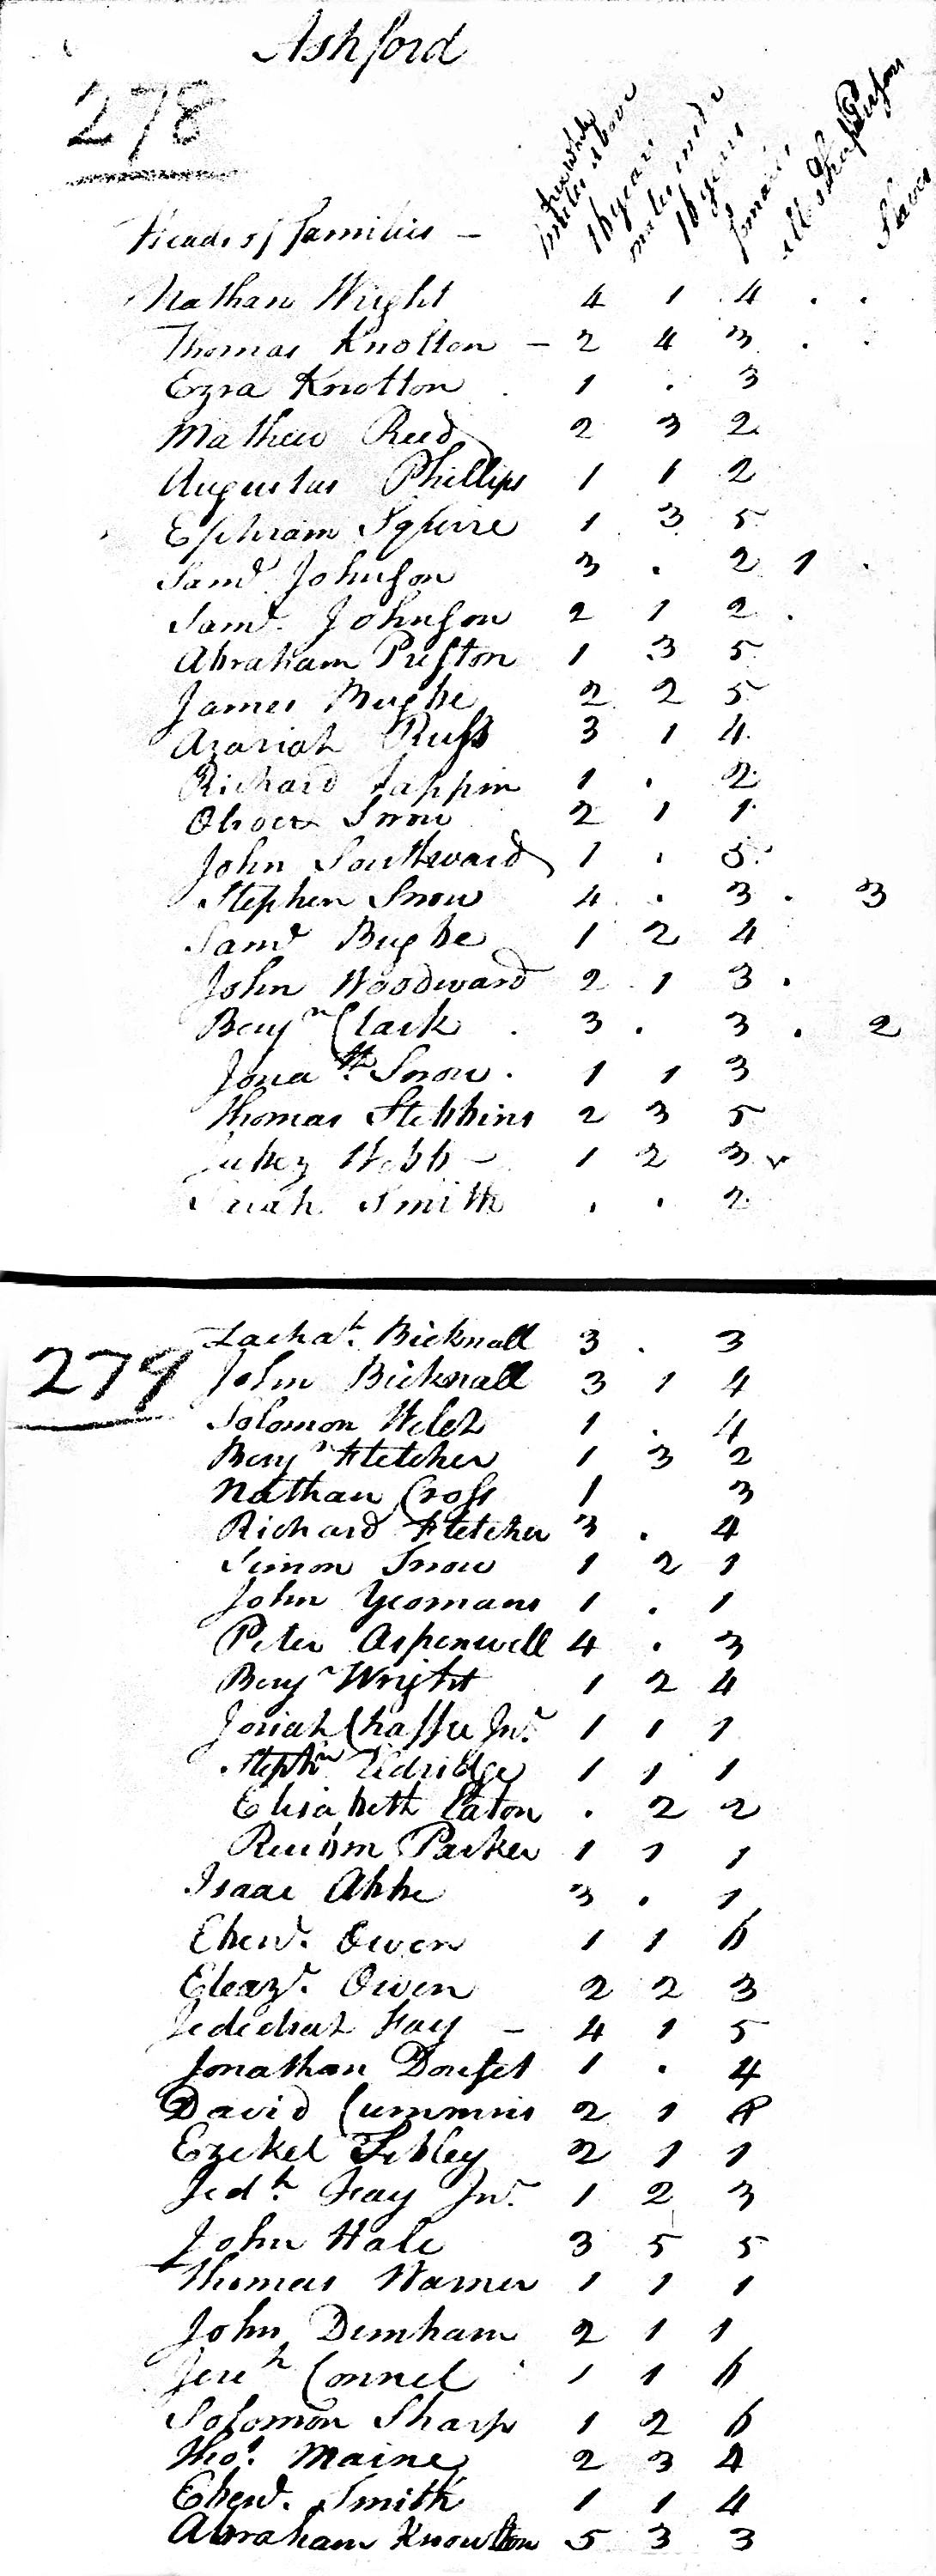 Ashford
278
Heads of families -
free white males above 16 years
males under 16 years
females
all other free Persons
Slaves
Nathan Wright 4 1 4 . .
Thomas Knolton - 2 4 3 . .
Ezra Knotton . 1 . 3
Mathew Reed 2 3 2
Augustus Phillips 1 1 2
Ephraim Squire 1 3 5
Samˡ Johnson 3 . 2 1 .
Samˡ. Johnson 2 1 2 .
Abraham Preston 1 3 5
James Bugbe 2 2 5
Azariah Russ 3 1 4
Richard Tappin 1 . 2
Oliver Snow 2 1 1
John Southward 1 . 5
Stephen Snow 4 . 3 . 3
Samˡ Bugbe 1 2 4
John Woodward 2 1 3 .
Benjⁿ Clark . 3 . 3 . 2
Jonaᵗʰ Snow . 1 1 3
Thomas Stebbins 2 3 5
Webb - 1 2 3
Smith . . 2
279
Zachaʰ. Bicknall 3 . 3
John Bicknall 3 1 4
Solomon Welch 1 . 4
Benjⁿ Fletcher 1 3 2
Nathan Cross 1 3
Richard Fletcher 3 . 4
Simon Snow 1 2 1
John Yeomans 1 . 1
Peter Aspenwell 4 . 3
Benjⁿ Wright 1 2 4
Josiah Chaffee Junʳ 1 1 1
Stephⁿ Eldridge 1 1 1
Elisabeth Eaton . 2 2
Reubin Parker 1 1 1
Isaac Abbe 3 . 1
Ebenʳ. Owen 1 1 6
Eleazʳ. Owen 2 2 3
Jedediah Fay - 4 1 5
Jonathan Dorset 1 . 4
David Cummins 2 1
Ezekel Sibley 2 1 1
Jedʰ. Fay Junʳ 1 2 3
John Hale 3 5 5
Thomas Warner 1 1 1
John Dunham 2 1 1
Jereʰ Connel 1 1 6
Solomon Sharp 1 2 6
Thoˢ. Maine 2 3 4
Ebenʳ. Smith 1 1 4
Abraham Knowlton 5 3 3